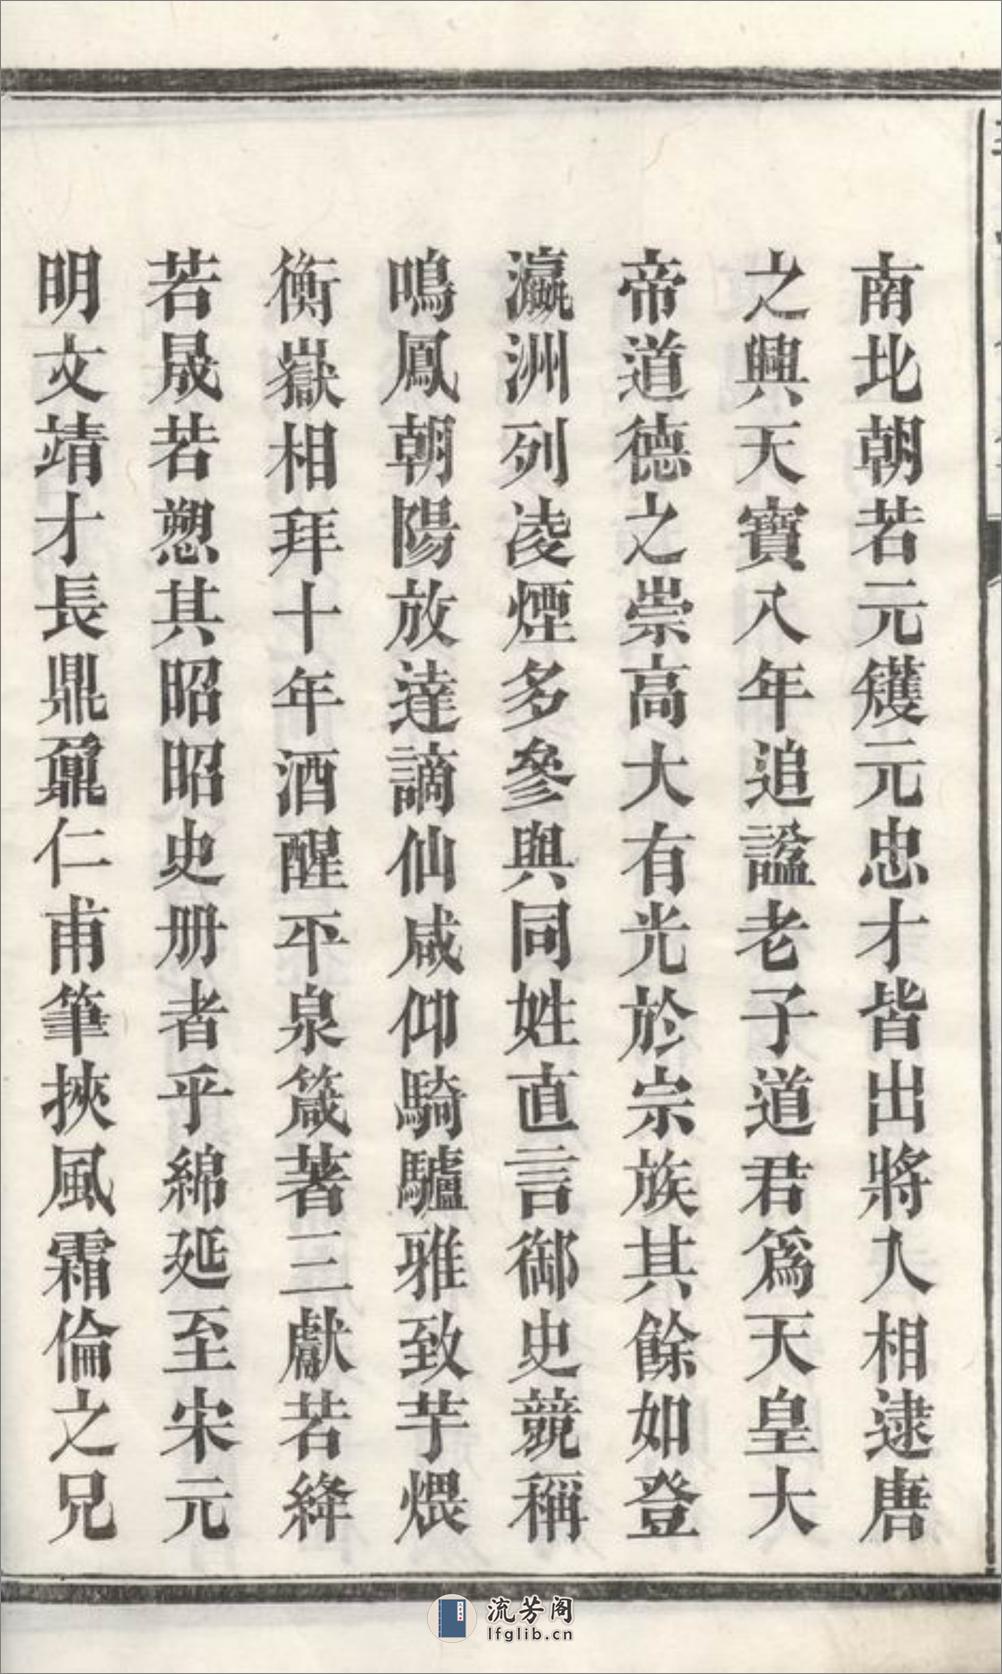 南北朝若元矱元忠才皆出將入相逮唐
之興天寶八年追諡老子道君爲天皇大
帝道德之崇高大有光於宗族其餘如登
瀛洲列凌煙多參與同姓直言御史競稱
鳴鳳朝陽放達謫仙咸仰騎驢雅致芋煨
衡嶽相拜十年酒醒平泉箴著三獻若絳
若晟若愬其昭昭史册者乎綿延至宋元
明文靖才長鼎鼐仁甫筆挾風霜倫之兄
流芳阁
lfglib.cn